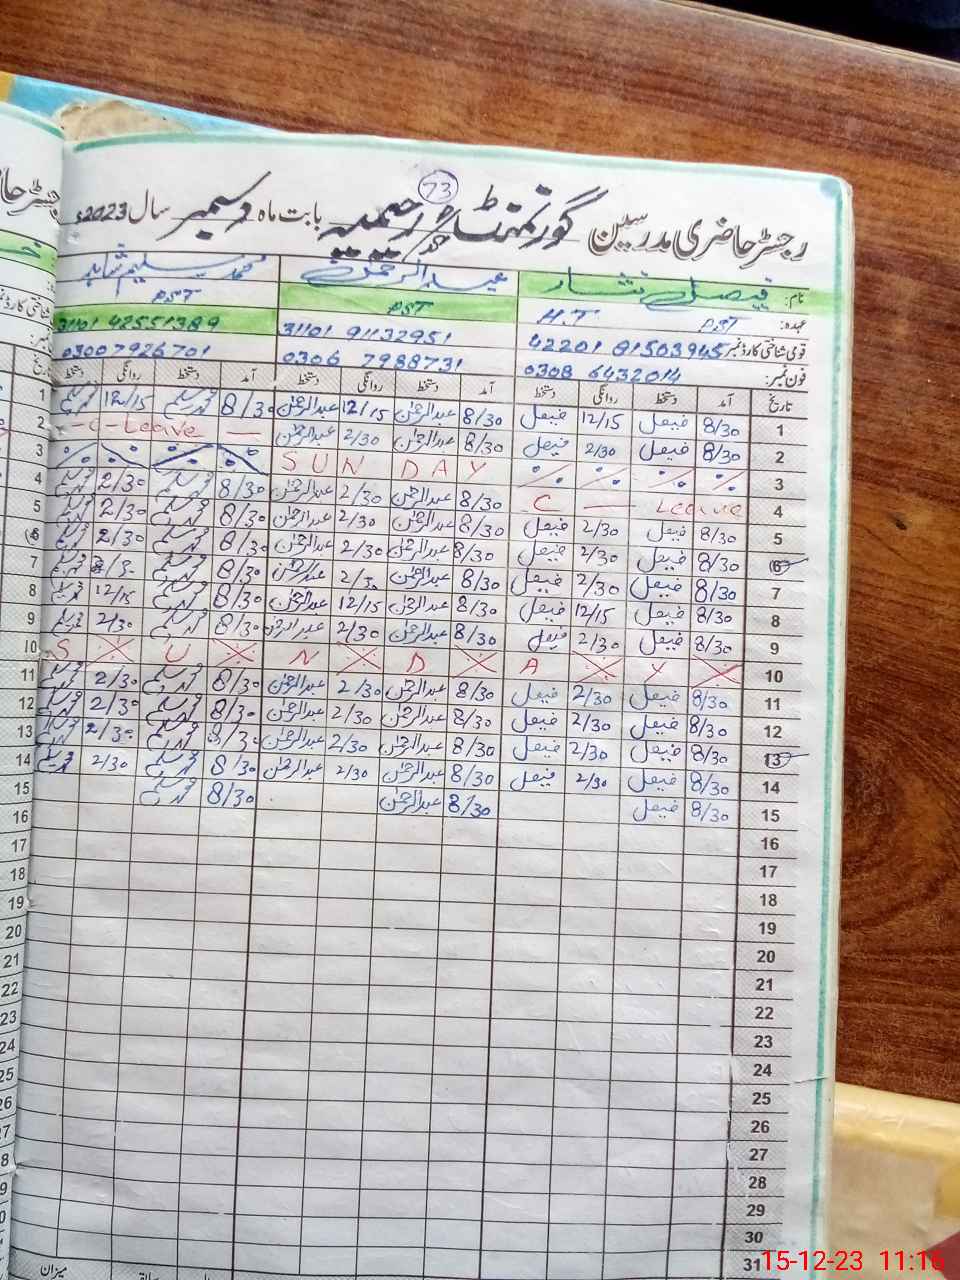 73
رجسٹر حاضری مدرسین گورنمنٹ رحیمیہ بابت ماہ دسمبر سال 2023ء
نام: فیصل نثار عبدالرحمٰن محمد سلیم شاہد
عہدہ: PST H.T PST PST
قومی شناختی کارڈ نمبر 42201 81503945 31101 91132951 31101 42551389
فون نمبر: 0308 6432014 0306 7988731 03007926701
تاریخ آمد دستخط روانگی دستخط آمد دستخط روانگی دستخط آمد دستخط روانگی دستخط
1 8/30 فیصل 12/15 فیصل 8/30 عبدالرحمٰن 12/15 عبدالرحمٰن 8/30 12/15
2 8/30 فیصل 2/30 فیصل 8/30 عبدالرحمٰن 2/30 عبدالرحمٰن -C-Leave-
3 SUNDAY
4 C — Leave 8/30 عبدالرحمٰن 2/30 عبدالرحمٰن 8/30 2/30
5 8/30 فیصل 2/30 فیصل 8/30 عبدالرحمٰن 2/30 عبدالرحمٰن 8/30 2/30
6 8/30 فیصل 2/30 فیصل 8/30 عبدالرحمٰن 2/30 عبدالرحمٰن 8/30 2/30
7 8/30 فیصل 2/30 فیصل 8/30 عبدالرحمٰن 2/30 عبدالرحمٰن 8/30
8 8/30 فیصل 12/15 فیصل 8/30 عبدالرحمٰن 12/15 عبدالرحمٰن 8/30 12/15
9 8/30 فیصل 2/30 فیصل 8/30 عبدالرحمٰن 2/30 عبدالرحمٰن 8/30 2/30
10 SUNDAY
11 8/30 فیصل 2/30 فیصل 8/30 عبدالرحمٰن 2/30 عبدالرحمٰن 8/30 2/30
12 8/30 فیصل 2/30 فیصل 8/30 عبدالرحمٰن 2/30 عبدالرحمٰن 8/30 2/30
13 8/30 فیصل 2/30 فیصل 8/30 عبدالرحمٰن 2/30 عبدالرحمٰن 8/30 2/30
14 8/30 فیصل 2/30 فیصل 8/30 عبدالرحمٰن 2/30 عبدالرحمٰن 8/30 2/30
15 8/30 فیصل 8/30 عبدالرحمٰن 8/30
16
17
18
19
20
21
22
23
24
25
26
27
28
29
30
31
میزان
15-12-23 11:16